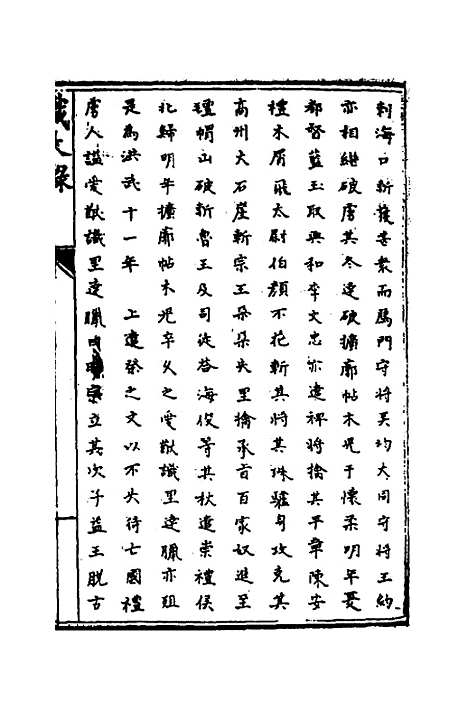 刺海口斬獲甚衆而鴈門守將吴均大同守將王約
亦相繼破虜其冬達破擴廓帖木児于懷柔明年夏
都督藍玉取興和李文忠亦遣裨將擒其平章陳安
禮木屑飛太尉伯顔不花斬其將真珠驢身攻克其
高州大石崖斬宗王朶朶失里擒承㫖百家奴進至
氊帽山破斬魯王及司徒荅海俊等其秋遣崇禮侯
北歸明年擴廓帖木児卒久之愛猷識里達臘亦殂
是為洪武十一年 上遣祭之文以不失待亡國禮
虜人諡愛猷識里達臘曰昭宗立其次子益王脱古